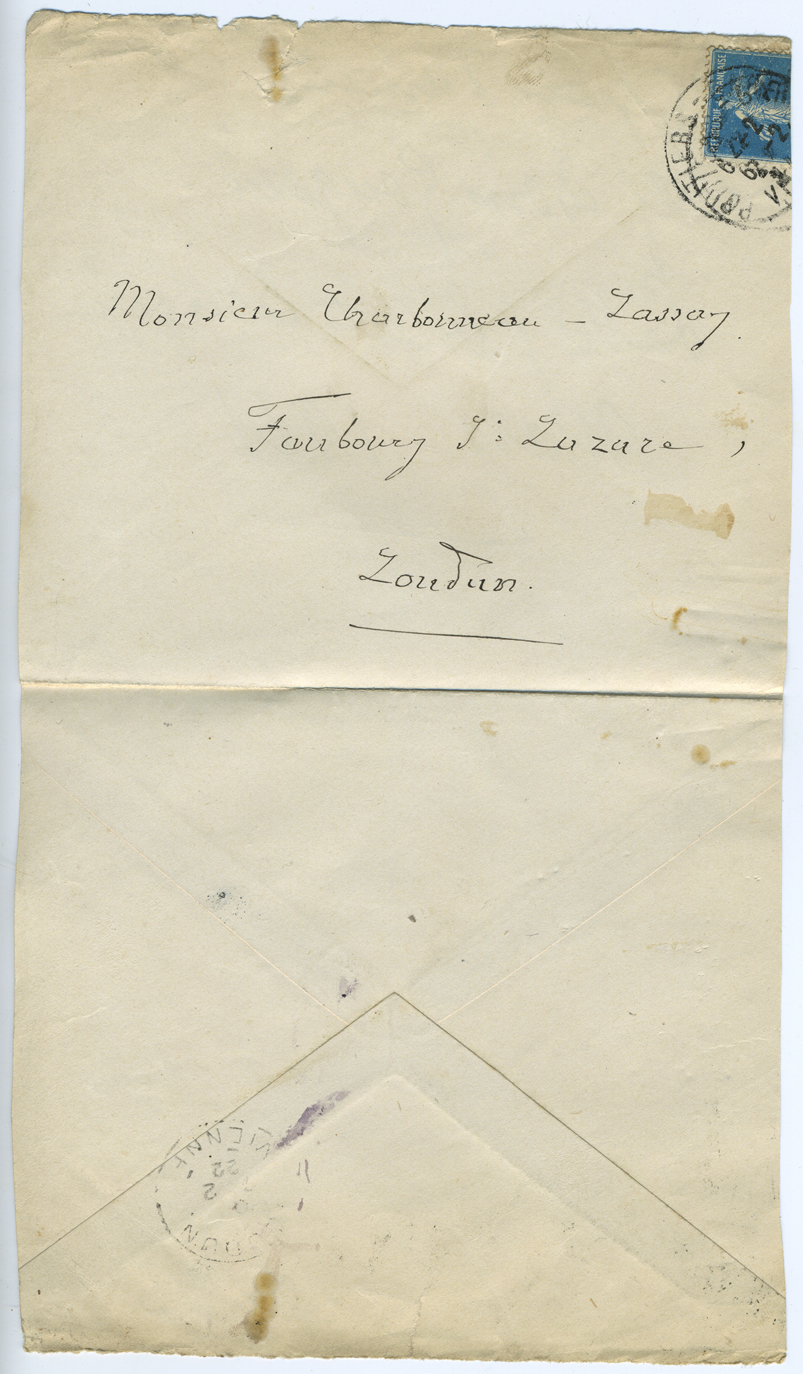 RÉPUBLIQUE FRANÇAISE
POITIERS
Monsieur Charbonneau - Lassay
Faubourg St Lazare,
Loudun.
VIENNE
22
2